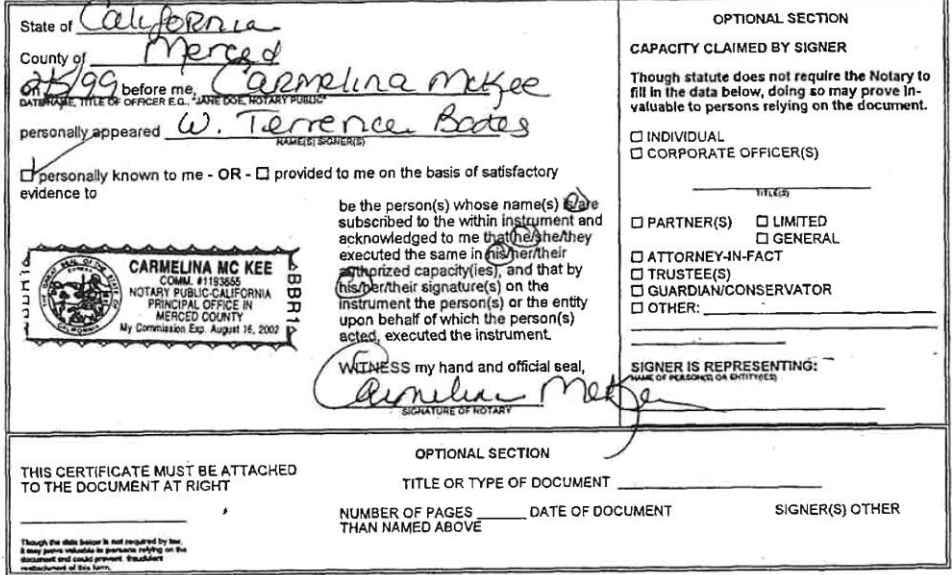 State of California
County of Merced
on 2/5/99 before me, Carmelina McKee
DATE NAME, TITLE OF OFFICER E.G., "JANE DOE, NOTARY PUBLIC"
personally appeared W. Terrence Bates
NAME(S) SIGNER(S)
☑ personally known to me - OR - ☐ provided to me on the basis of satisfactory
evidence to
be the person(s) whose name(s) is/are
subscribed to the within instrument and
acknowledged to me that he/she/they
executed the same in his/her/their
authorized capacity(ies), and that by
his/her/their signature(s) on the
instrument the person(s) or the entity
upon behalf of which the person(s)
acted, executed the instrument.
CARMELINA MC KEE
COMM. #1193655
NOTARY PUBLIC-CALIFORNIA
PRINCIPAL OFFICE IN
MERCED COUNTY
My Commission Exp. August 16, 2002
WITNESS my hand and official seal,
Carmelina McKee
SIGNATURE OF NOTARY
OPTIONAL SECTION
CAPACITY CLAIMED BY SIGNER
Though statute does not require the Notary to
fill in the data below, doing so may prove in-
valuable to persons relying on the document.
☐ INDIVIDUAL
☐ CORPORATE OFFICER(S)
TITLE(S)
☐ PARTNER(S) ☐ LIMITED
☐ GENERAL
☐ ATTORNEY-IN-FACT
☐ TRUSTEE(S)
☐ GUARDIAN/CONSERVATOR
☐ OTHER:
SIGNER IS REPRESENTING:
NAME OF PERSON(S) OR ENTITY(IES)
OPTIONAL SECTION
THIS CERTIFICATE MUST BE ATTACHED
TO THE DOCUMENT AT RIGHT
TITLE OR TYPE OF DOCUMENT
NUMBER OF PAGES DATE OF DOCUMENT SIGNER(S) OTHER
THAN NAMED ABOVE
Though the data below is not required by law,
it may prove valuable to persons relying on the
document and could prevent fraudulent
reattachment of this form.